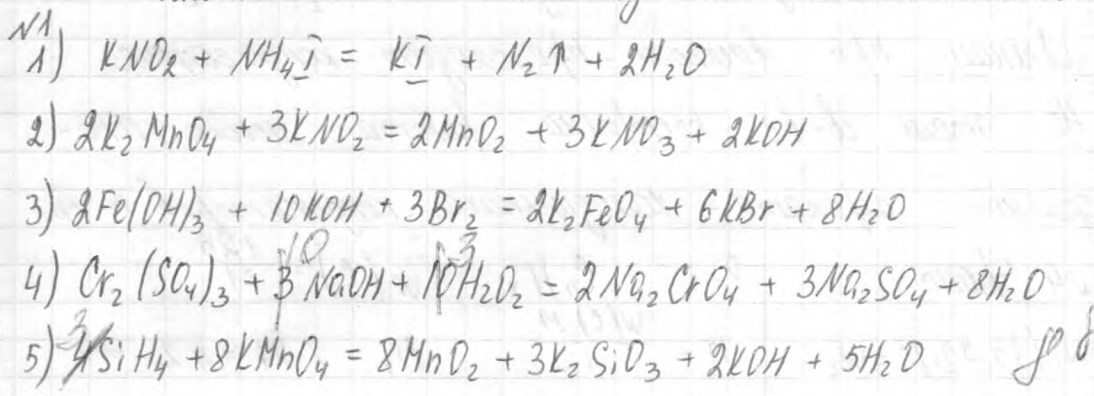 N1
1) KNO₂ + NH₄I = KI + N₂↑ + 2H₂O
2) 2K₂MnO₄ + 3KNO₂ = 2MnO₂ + 3KNO₃ + 2KOH
3) 2Fe(OH)₃ + 10KOH + 3Br₂ = 2K₂FeO₄ + 6KBr + 8H₂O
4) Cr₂(SO₄)₃ + 10NaOH + 3H₂O₂ = 2Na₂CrO₄ + 3Na₂SO₄ + 8H₂O
5) 3SiH₄ + 8KMnO₄ = 8MnO₂ + 3K₂SiO₃ + 2KOH + 5H₂O